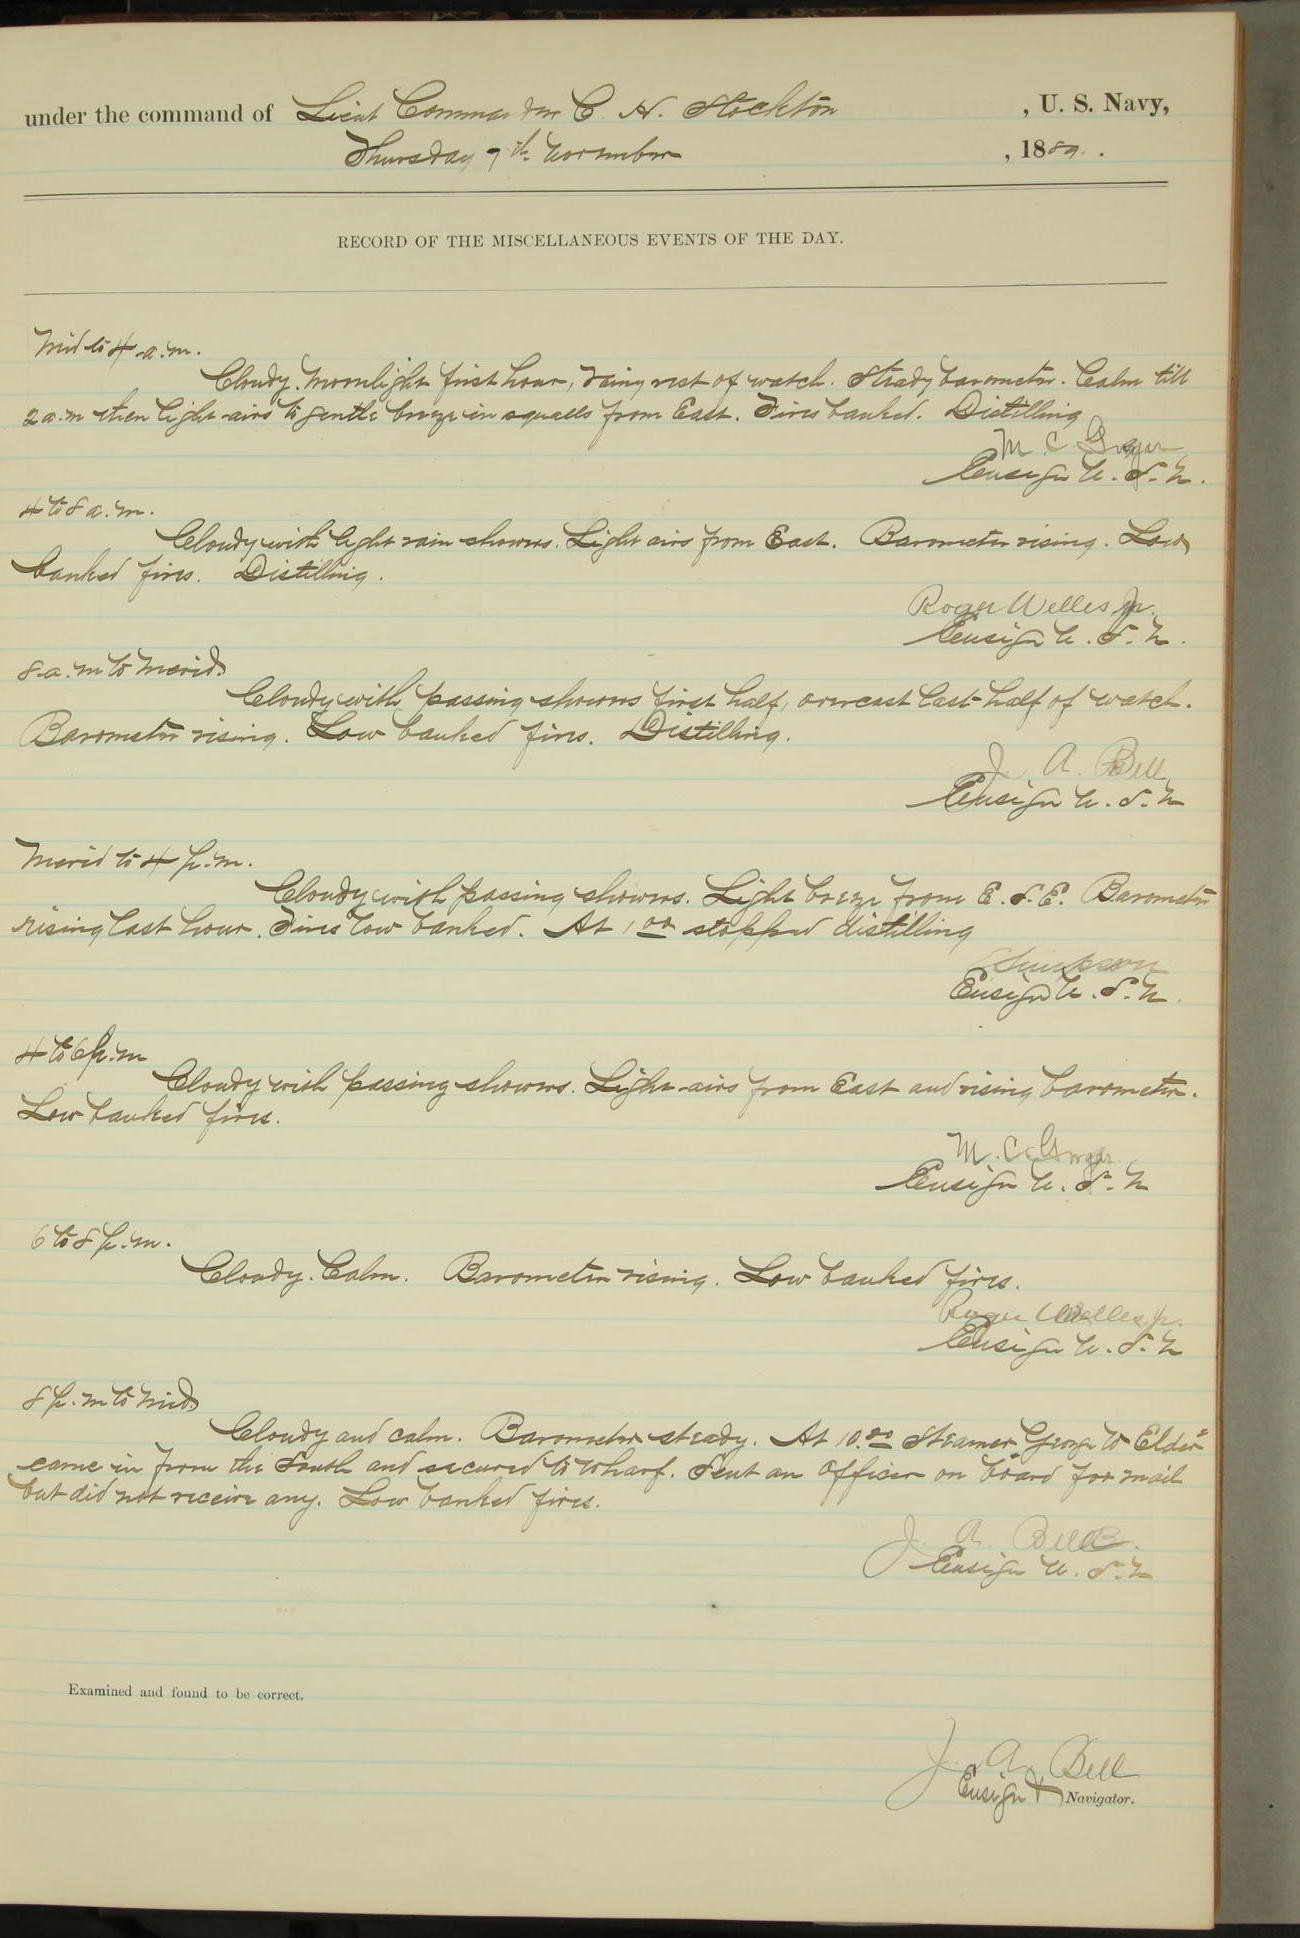 under the command of Lieut Commander C. H. Stockton, U. S. Navy,
Thursday 7th November, 1889.
RECORD OF THE MISCELLANEOUS EVENTS OF THE DAY.
Mid to 4 a.m.
Cloudy. Moonlight first hour, rainy rest of watch. Steady barometer. Calm till
2 a.m then light airs to gentle breeze in squalls from East. Fires banked. Distilling
M. C. Gorgas
Ensign U. S. N.
4 to 8 a.m.
Cloudy with light rain showers. Light airs from East. Barometer rising. Low
banked fires. Distilling.
Roger Welles Jr.
Ensign U. S. N.
8 a.m to Merid.
Cloudy with passing showers first half, overcast last half of watch.
Barometer rising. Low banked fires. Distilling.
J. A. Bell
Ensign U. S. N
Merid to 4 p.m.
Cloudy with passing showers. Light breeze from E. S. E. Barometer
rising last hour. Fires low banked. At 1 00 stopped distilling
Simpson
Ensign U. S. N.
4 to 6 p.m
Cloudy with passing showers. Light airs from East and rising barometer.
Low banked fires.
M. C. Gorgas
Ensign U. S. N
6 to 8 p.m.
Cloudy. Calm. Barometer rising. Low banked fires.
Roger Welles jr.
Ensign U. S. N
8 p.m to Mid.
Cloudy and calm. Barometer steady. At 10. Steamer "George W Elder"
came in from the South and secured to wharf. Sent an Officer on board for mail
but did not receive any. Low banked fires.
J. A. Bell
Ensign U. S. N
Examined and found to be correct.
J. A. Bell
Ensign & Navigator.